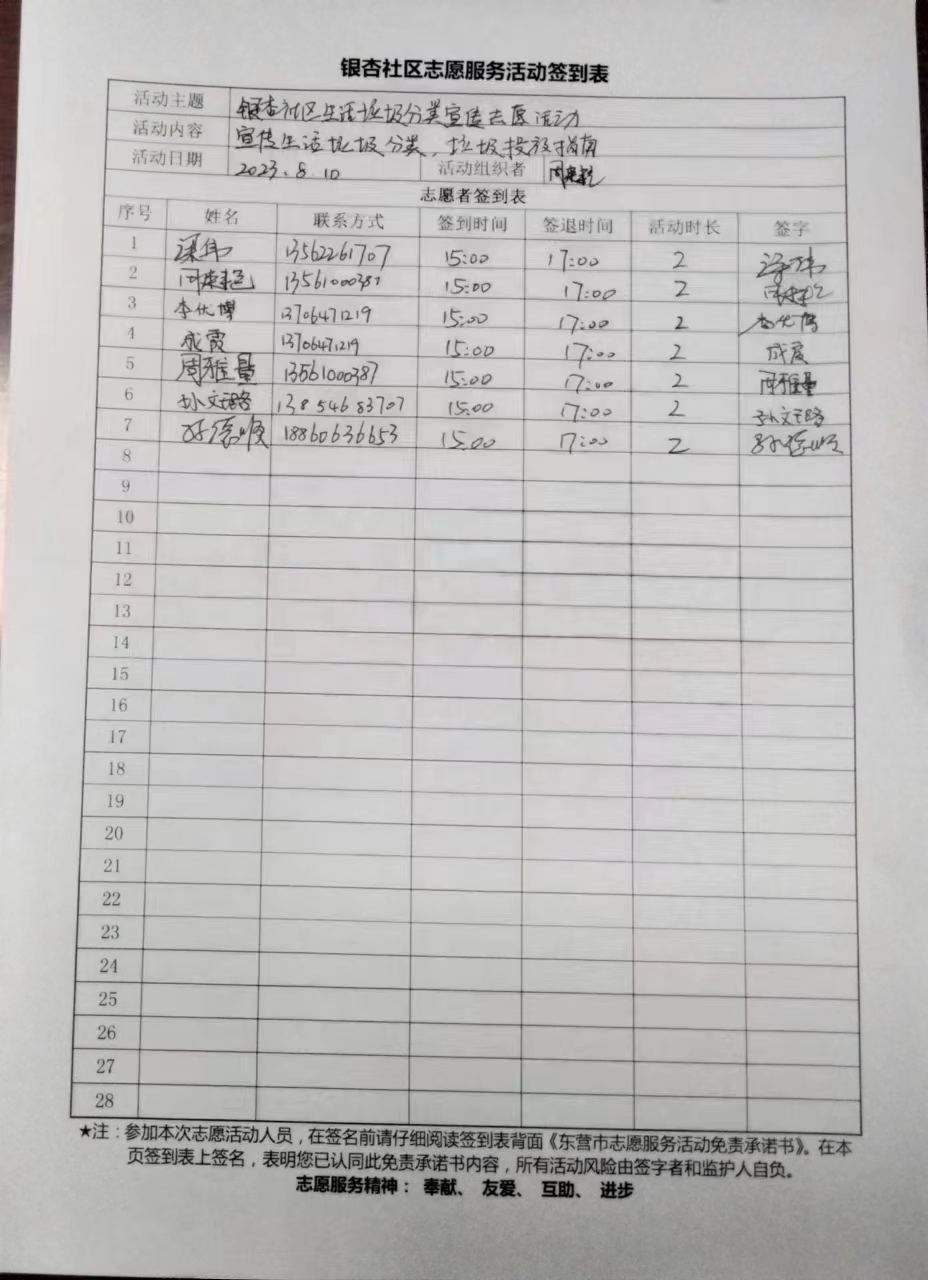 银杏社区志愿服务活动签到表
活动主题 银杏社区生活垃圾分类宣传志愿活动
活动内容 宣传生活垃圾分类、垃圾投放指南
活动日期 2023.8.10 活动组织者
志愿者签到表
序号 姓名 联系方式 签到时间 签退时间 活动时长 签字
1 梁伟 13562261707 15:00 17:00 2 梁伟
2 13561000387 15:00 17:00 2
3 李优博 13706471219 15:00 17:00 2 李优博
4 成霞 13706471219 15:00 17:00 2 成霞
5 周雅量 13561000387 15:00 17:00 2 周雅量
6 孙文璐 13854683707 15:00 17:00 2 孙文璐
7 孙德顺 18860636653 15:00 17:00 2 孙德顺
8
9
10
11
12
13
14
15
16
17
18
19
20
21
22
23
24
25
26
27
28
★注：参加本次志愿活动人员，在签名前请仔细阅读签到表背面《东营市志愿服务活动免责承诺书》。在本
页签到表上签名，表明您已认同此免责承诺书内容，所有活动风险由签字者和监护人自负。
志愿服务精神： 奉献、 友爱、 互助、 进步